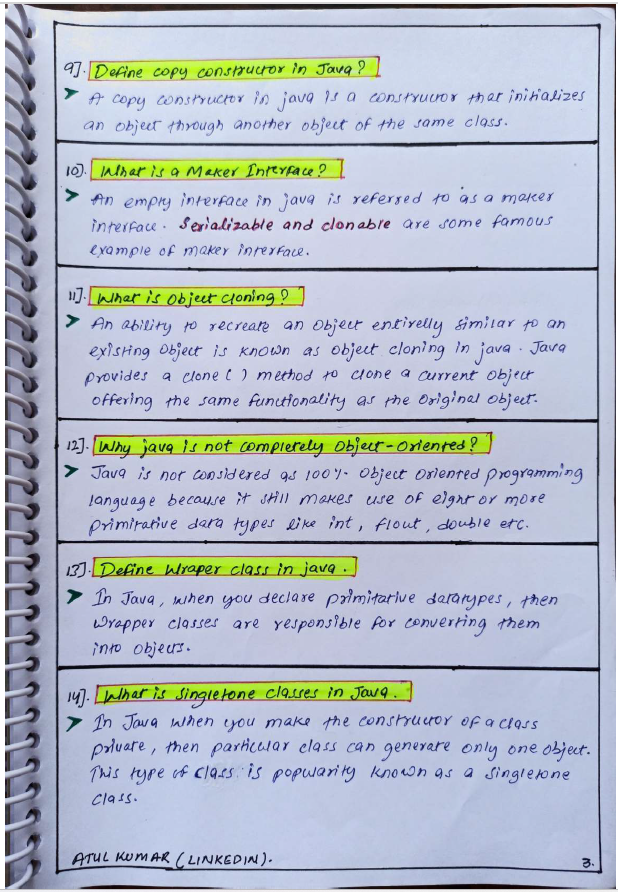 9]. Define copy constructor in Java?
➤ A copy constructor in java is a constructor that initializes
an object through another object of the same class.
10]. What is a Maker Interface?
➤ An empty interface in java is referred to as a maker
interface. Serializable and clonable are some famous
example of maker interface.
11]. What is Object cloning?
➤ An ability to recreate an object entirelly similar to an
existing object is known as object cloning in java. Java
provides a clone( ) method to clone a current object
offering the same functionality as the original object.
12]. Why java is not completely Object-Oriented?
➤ Java is not considered as 100% Object Oriented programming
language because it still makes use of eight or more
primitative data types like int, flout, double etc.
13]. Define Wraper class in java.
➤ In Java, when you declare primitative datatypes, then
Wrapper classes are responsible for converting them
into objects.
14]. What is singletone classes in Java.
➤ In Java when you make the constructor of a class
private, then particular class can generate only one object.
This type of class is popularity known as a singletone
class.
ATUL KUMAR (LINKEDIN).
3.